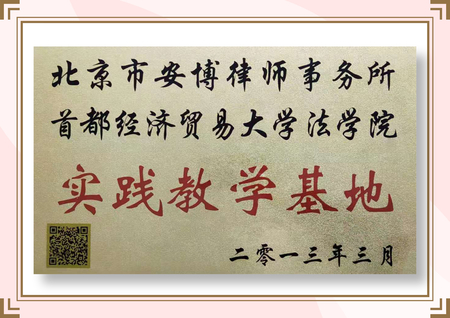 北京市安博律师事务所
首都经济贸易大学法学院
实践教学基地
二零一三年三月